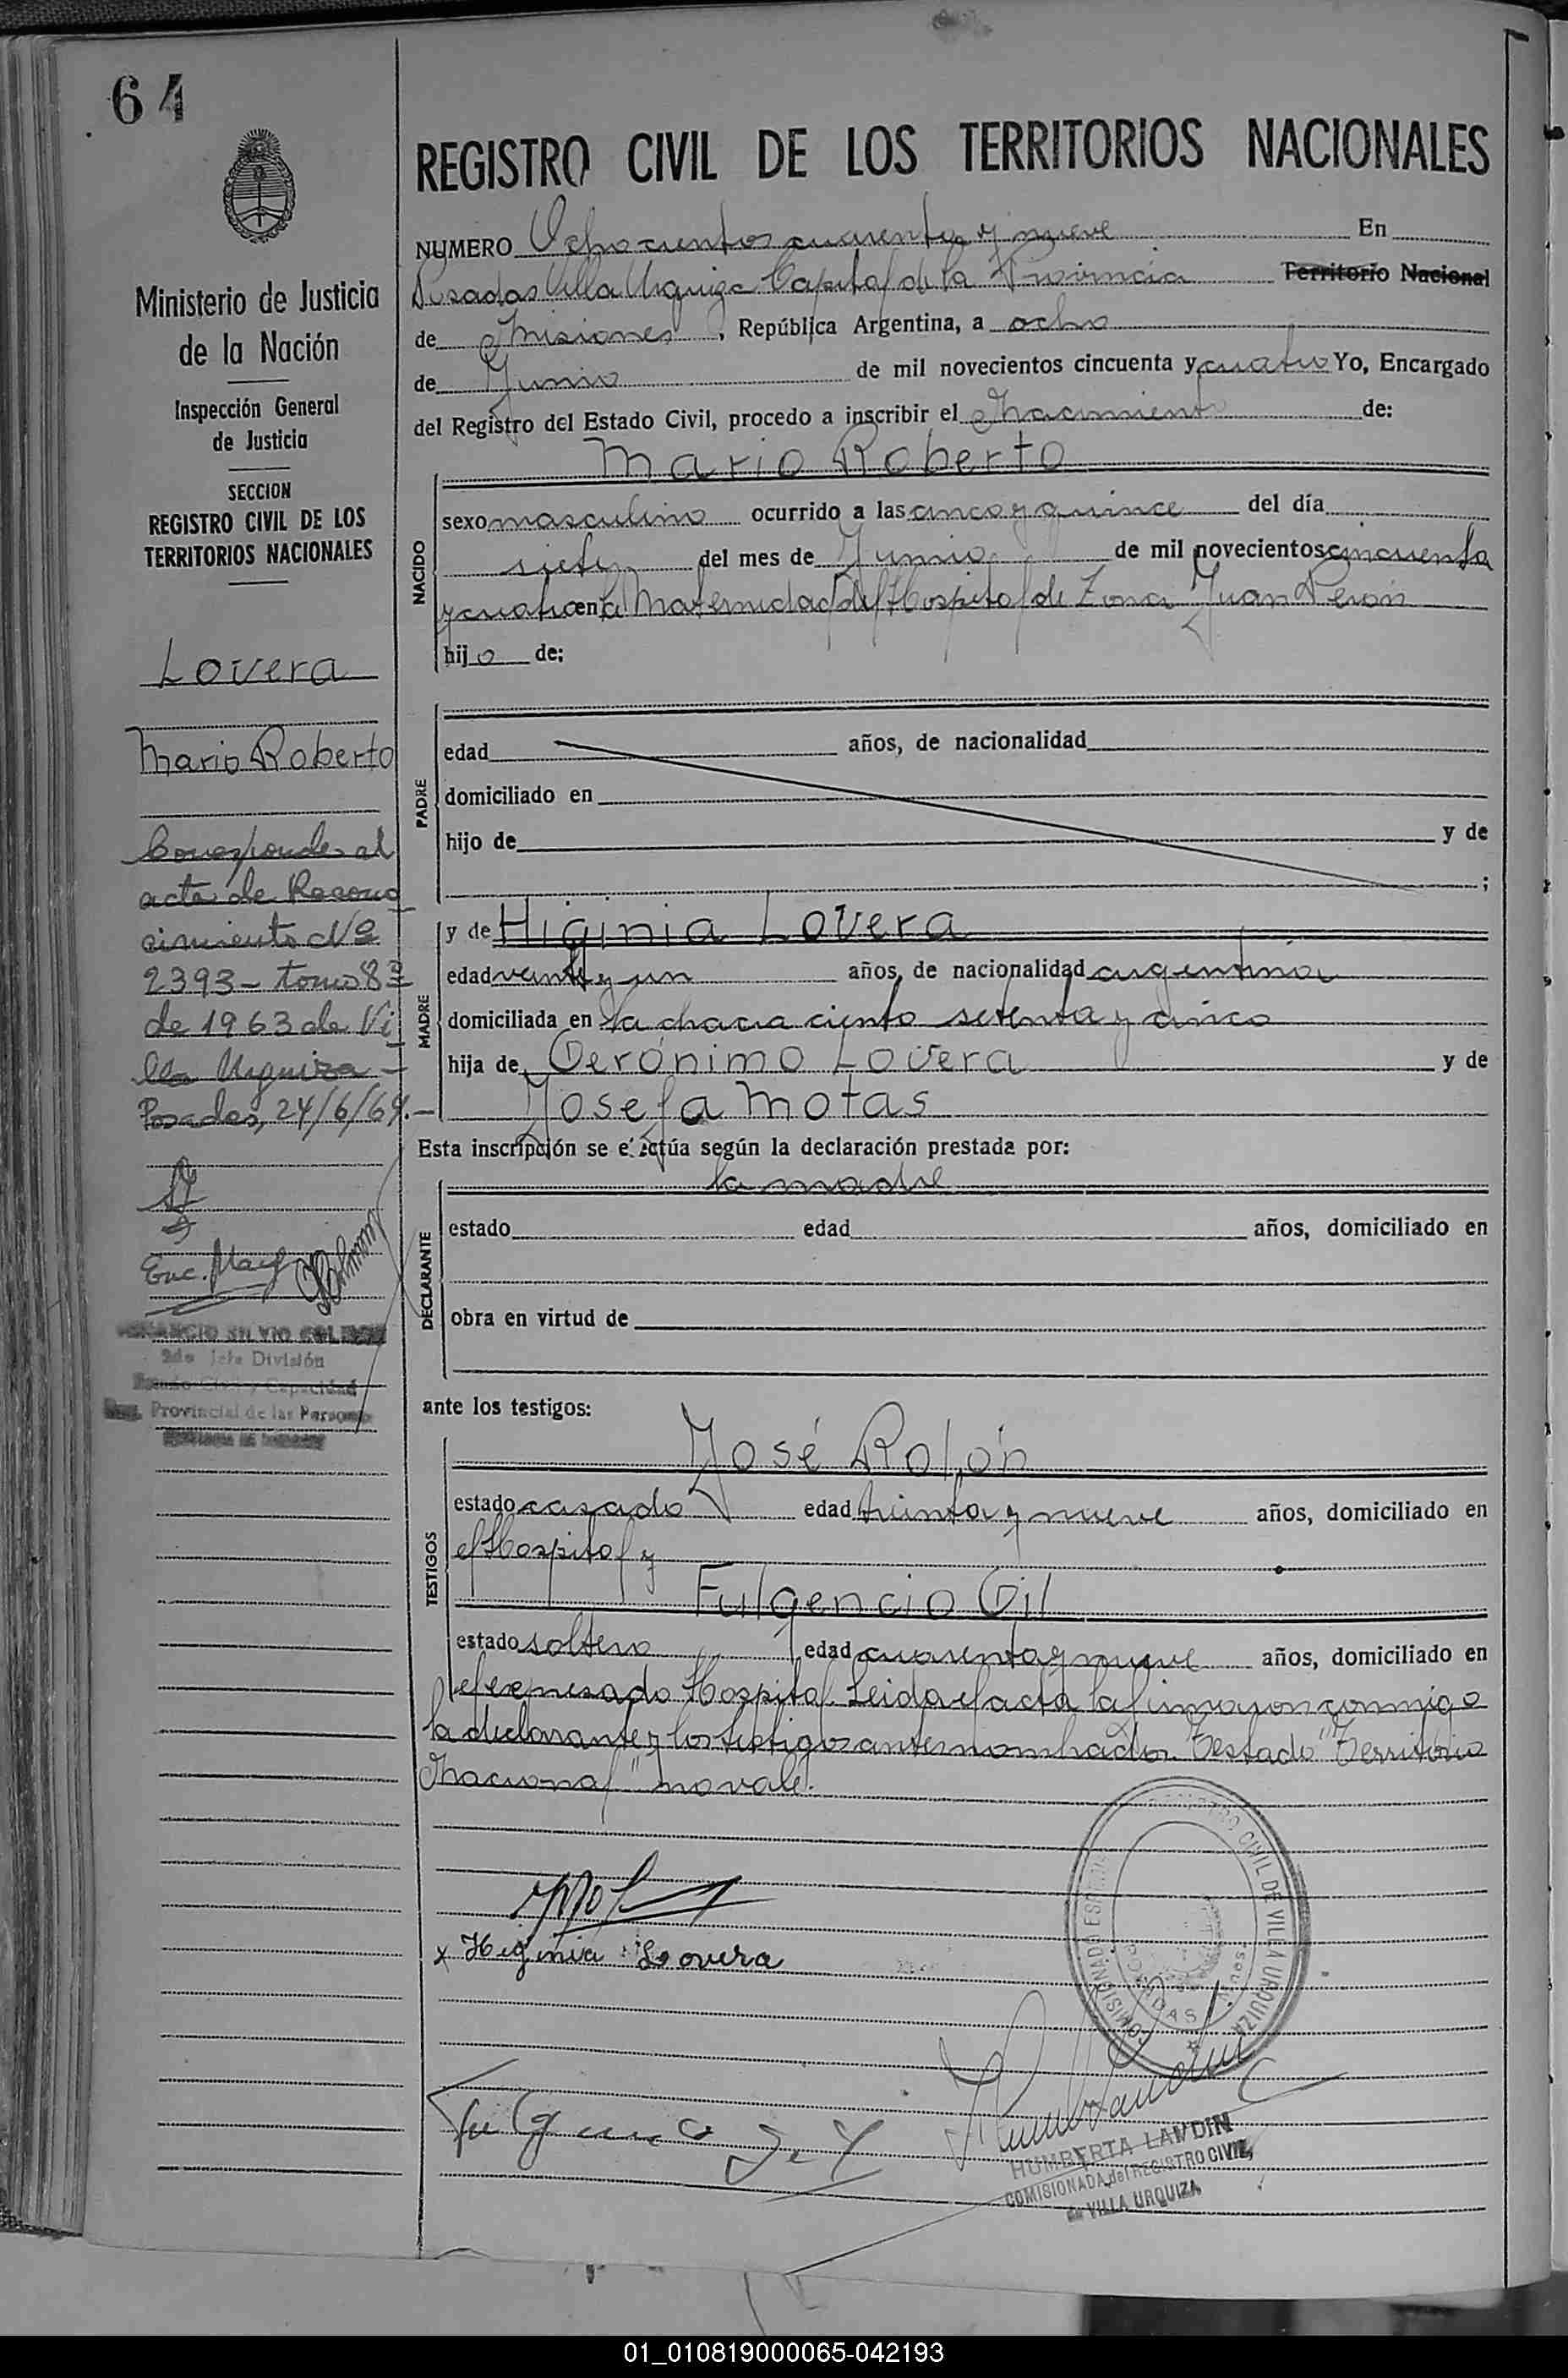 64
Ministerio de Justicia
de la Nación
Inspección General
de Justicia
SECCION
REGISTRO CIVIL DE LOS
TERRITORIOS NACIONALES
Lovera
Mario Roberto
Corresponde al
acta de Recono
cimiento Nº
2393 - tomo 8º
de 1963 de Vi
lla Urquiza -
Posadas, 24/6/69.-
Enc. Mach
2do Jefe División
Estado Civil y Capacidad
Provincial de las Personas
REGISTRO CIVIL DE LOS TERRITORIOS NACIONALES
NUMERO Ochocientos cuarenta y nueve En
Posadas Villa Urquiza Capital de la Provincia Territorio Nacional
de Misiones, República Argentina, a ocho
de Junio de mil novecientos cincuenta y cuatro Yo, Encargado
del Registro del Estado Civil, procedo a inscribir el Nacimiento de:
Mario Roberto
NACIDO
sexo masculino ocurrido a las cinco y quince del día
siete del mes de Junio de mil novecientos cincuenta
y cuatro en la Maternidad del Hospital de Zona Juan Perón
hijo de:
PADRE
edad años, de nacionalidad
domiciliado en
hijo de y de
;
MADRE
y de Higinia Lovera
edad veinte y un años, de nacionalidad argentina
domiciliada en la chacra ciento setenta y cinco
hija de Gerónimo Lovera y de
Josefa Motas
Esta inscripción se efectúa según la declaración prestada por:
la madre
DECLARANTE
estado edad años, domiciliado en
obra en virtud de
ante los testigos:
TESTIGOS
José Rolón
estado casado edad treinta y nueve años, domiciliado en
el Hospital y
Fulgencio Gil
estado soltero edad cuarenta y nueve años, domiciliado en
el expresado Hospital. Leida el acta la firmaron conmigo
la declarante y los testigos antes nombrados. Testado "Territorio
Nacional" no vale.
x Higinia Lovera
Fulgencio Gil
COMISIONADA REGISTRO CIVIL DE VILLA URQUIZA
POSADAS
HUMBERTA LANDIN
COMISIONADA del REGISTRO CIVIL
de VILLA URQUIZA
01_010819000065-042193